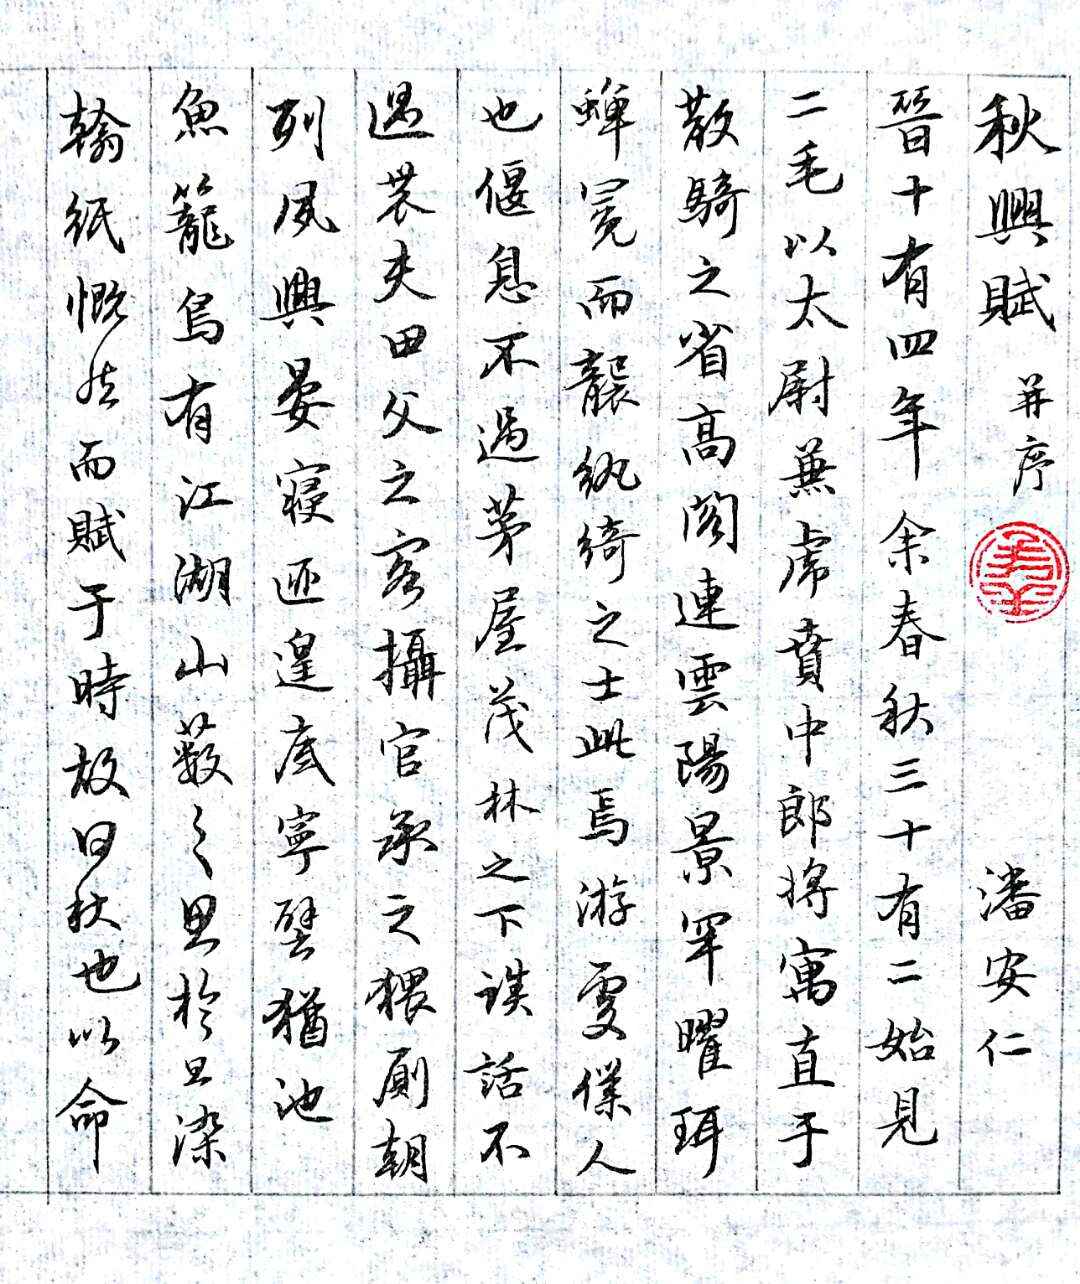 秋興賦 并序 潘安仁
晉十有四年余春秋三十有二始見
二毛以太尉兼虎賁中郎將寓直于
散騎之省高閣連雲陽景罕曜珥
蟬冕而襲紈綺之士此焉游處僕人
也偃息不過茅屋茂林之下談話不
過農夫田父之客攝官承之猥廁朝
列夙興晏寢匪遑底寧譬猶池
魚籠鳥有江湖山藪之思於是染
翰紙慨然而賦于時故曰秋也以命